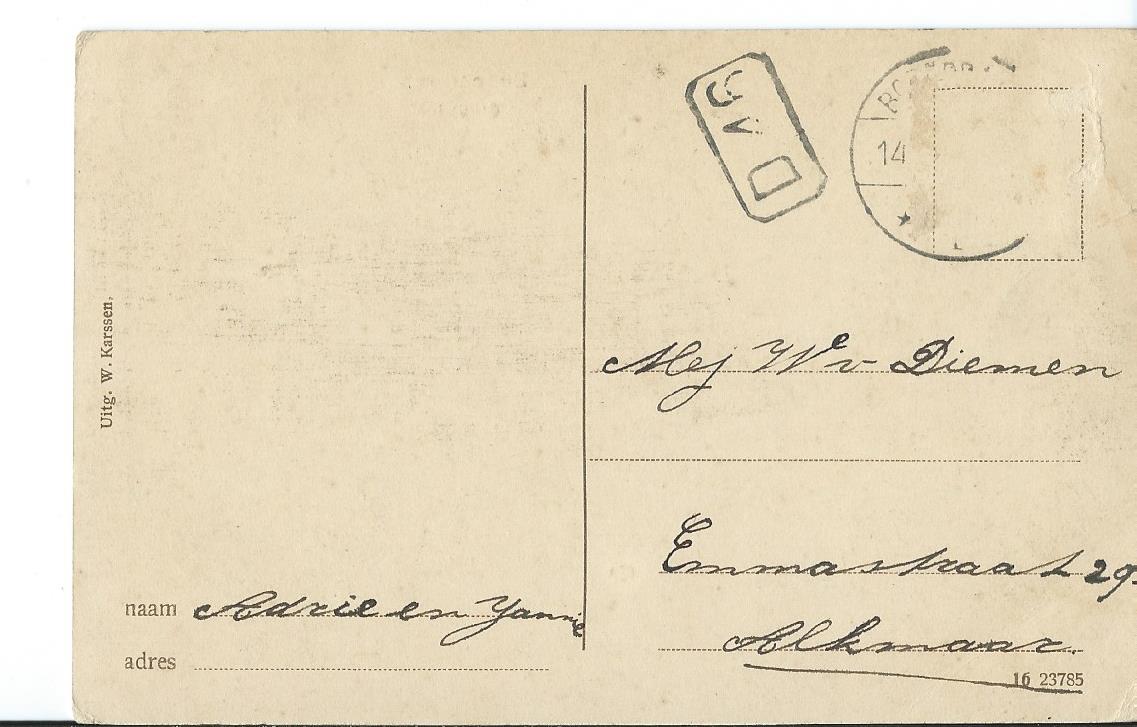 Uitg. W. Karssen,
14
Mej We v Diemen
Emmastraat 29.
Alkmaar.
naam Adrie en Yannie
adres
16 23785